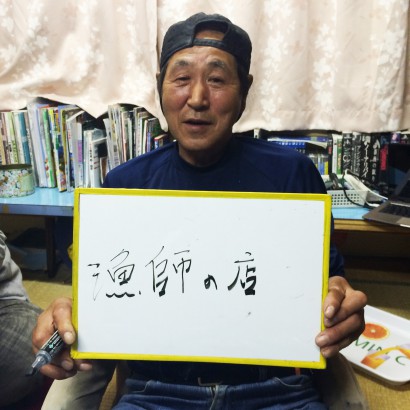 漁師の店